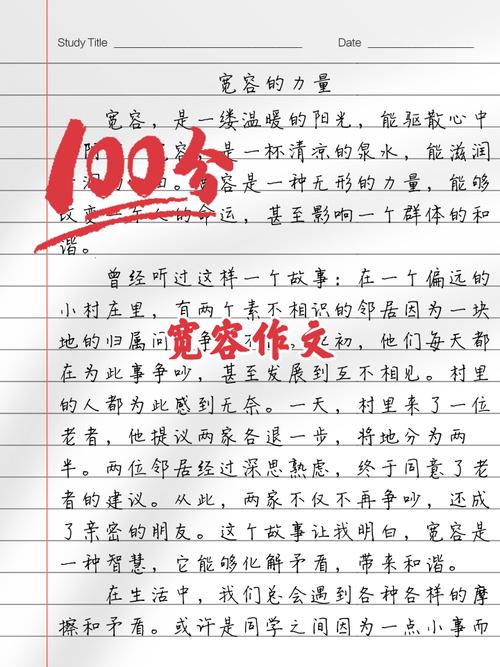 Study Title
Date
宽容的力量
宽容，是一缕温暖的阳光，能驱散心中
100分
容，是一杯清凉的泉水，能滋润
容是一种无形的力量，能够
改变一个人的命运，甚至影响一个群体的和
谐。
曾经听过这样一个故事：在一个偏远的
小村庄里，有两个素不相识的邻居因为一块
地的归属问争不初，他们每天都
宽容作文
在为此事争吵，甚至发展到互不相见。村里
的人都为此感到无奈。一天，村里来了一位
老者，他提议两家各退一步，将地分为两
半。两位邻居经过深思熟虑，终于同意了老
者的建议。从此，两家不仅不再争吵，还成
了亲密的朋友。这个故事让我明白，宽容是
一种智慧，它能够化解矛盾，带来和谐。
在生活中，我们总会遇到各种各样的摩
擦和矛盾。或许是同学之间因为一点小事而